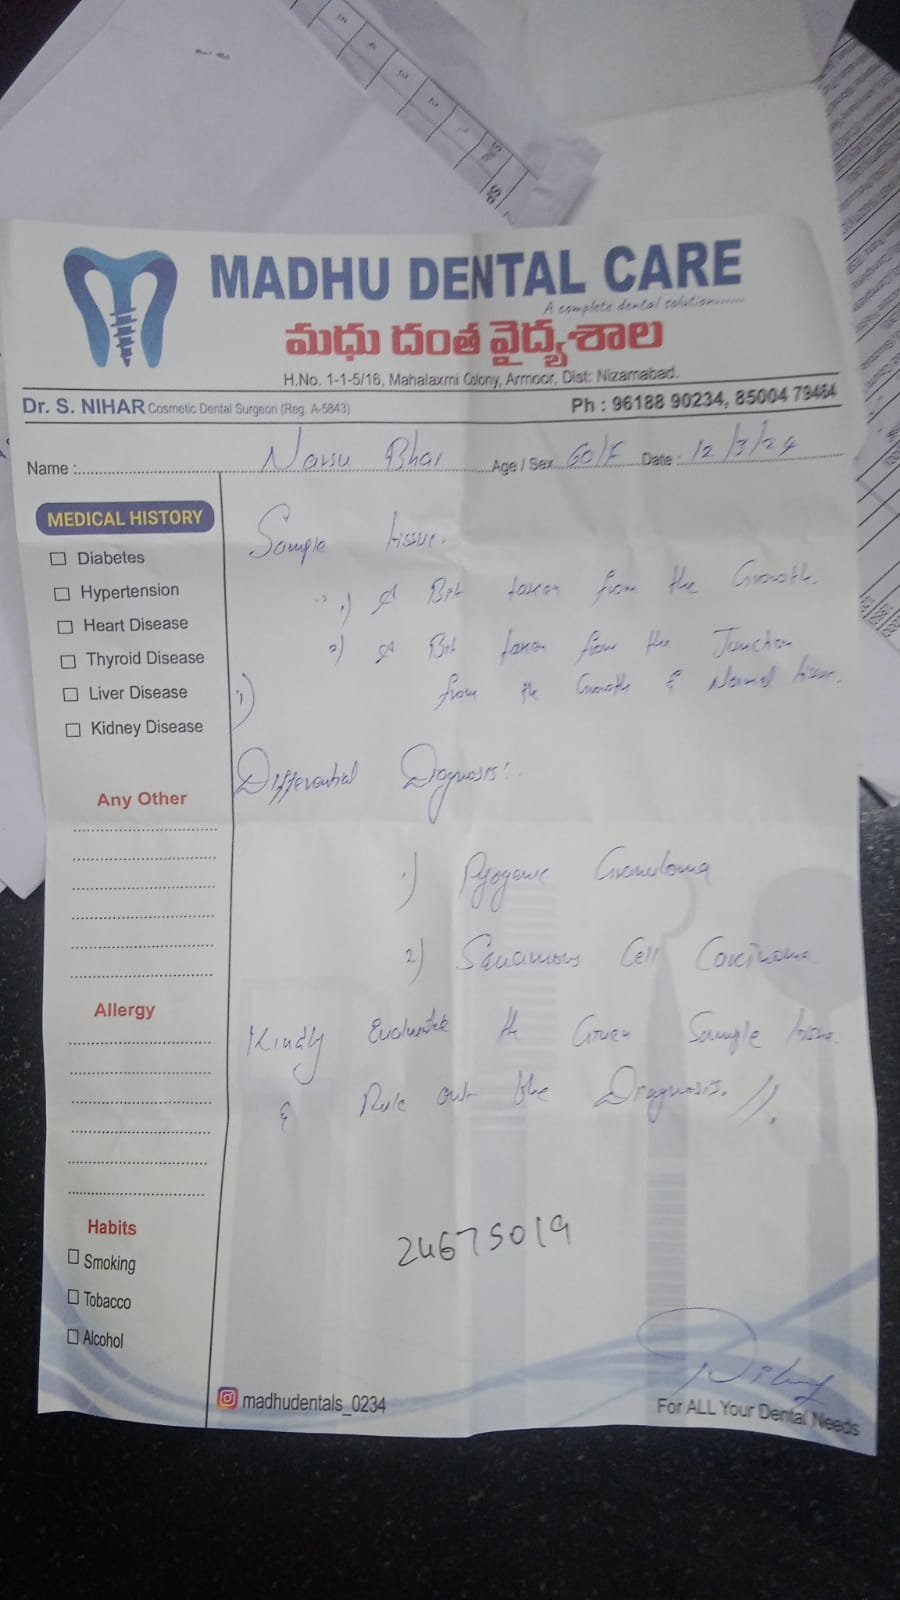 MADHU DENTAL CARE
A complete dental solution......
మధు దంత వైద్యశాల
H.No. 1-1-5/16, Mahalaxmi Colony, Armoor, Dist: Nizamabad.
Dr. S. NIHAR Cosmetic Dental Surgeon (Reg. A-5843)
Ph : 96188 90234, 85004 79464
Name : Narsu Bhai Age / Sex 60/F Date : 12/3/24
MEDICAL HISTORY
Diabetes
Hypertension
Heart Disease
Thyroid Disease
Liver Disease
Kidney Disease
Any Other
Allergy
Habits
Smoking
Tobacco
Alcohol
Sample tissue.
1) A Bit taken from the Growth.
2) A Bit taken from the Junction
1) from the Growth & Normal tissue.
Differential Diagnosis:
1) Pyogenic Granuloma
2) Squamous Cell Carcinoma
Kindly Evaluate the Given Sample tissue
& Rule out the Diagnosis.
24675019
madhudentals_0234
For ALL Your Dental Needs